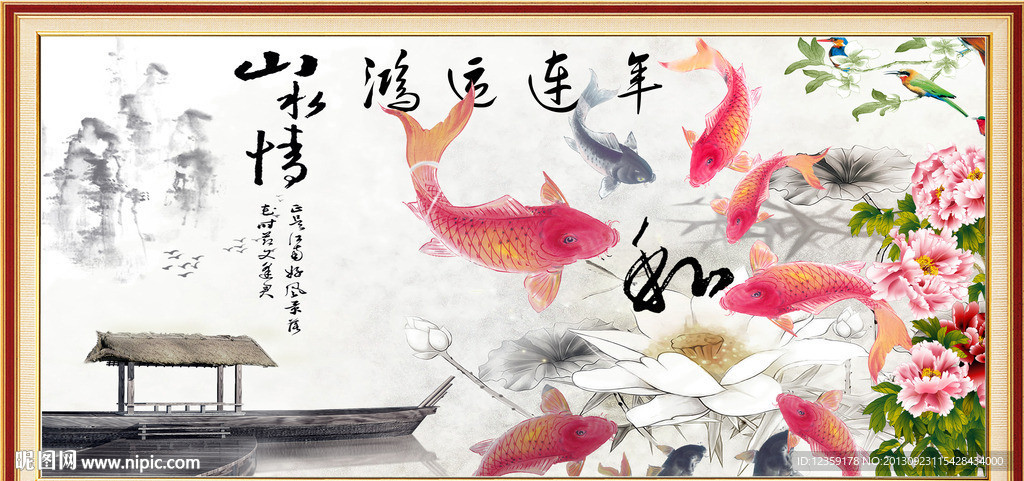 山水情
鸿运连年
正是江南好风景落
花时节又逢君
和
昵图网 www.nipic.com
ID:12359178 NO:20130923115428434000